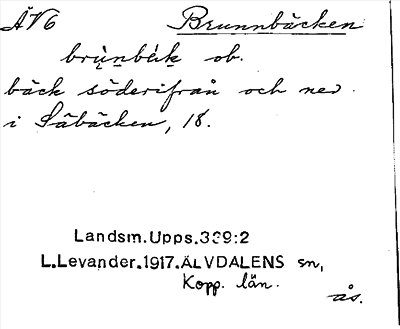 ÄV6 Brunnbäcken
brùnbä́k ob.
bäck söderifrån och ned
i Säbäcken, 18.
Landsm.Upps.339:2
L.Levander.1917.ÄLVDALENS sn,
Kopp. län.
ås.